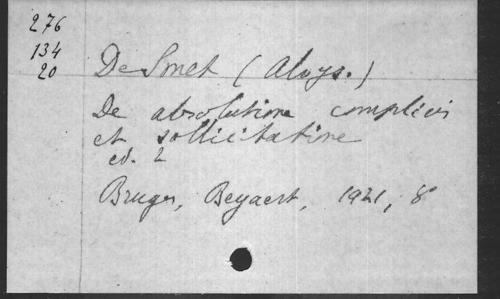 276
134
20
De Smet (Aloys.)
De absolutione complicis
et sollicitatione
ed. 2
Bruges, Beyaert, 1921, 8°